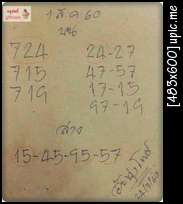 1 ส.ค 60
บน
724 24-27
715 47-57
719 17-15
97-19
ล่าง
15-45-95-57
[483x600] upic.me